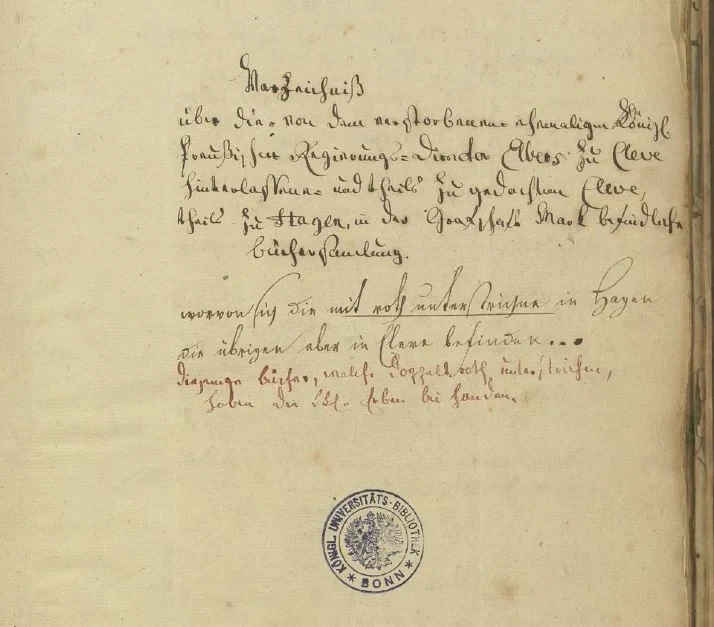 Verzeichniß
über die von dem verstorbenen ehemaligen Königl.
Preußischen Regierungs-Director Elbers zu Cleve
hinterlassene und theils zu gedachten Cleve,
theils zu Hagen, in der Grafschaft Mark befindliche
büchersamlung.
worvon sich die mit roth unterstrichne in Hagen
die übrigen aber in Cleve befinden...
diejenige bücher, welche doppelt roth unterstrichen,
haben die Erben bei handen.
KÖNIGL. UNIVERSITÄTS-BIBLIOTHEK
* BONN *